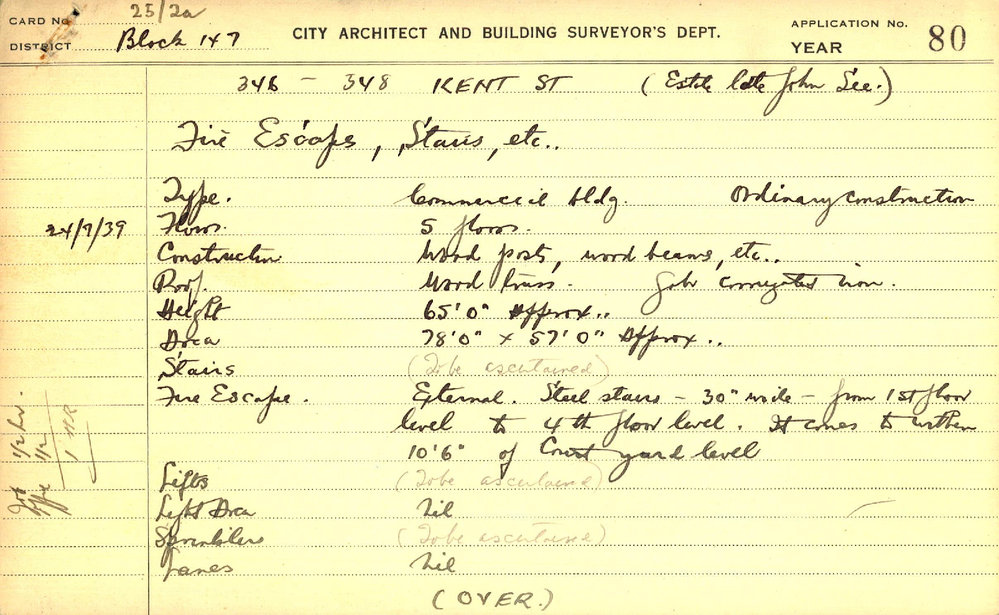 CARD No. 25/2a
DISTRICT Block 147
CITY ARCHITECT AND BUILDING SURVEYOR'S DEPT.
APPLICATION No.
YEAR 80
346 - 348 KENT ST (Estate late John See.)
Fire Escape, Stairs, etc..
Type. Commercial bldg. Ordinary construction
24/7/39 Floors. 5 floors.
Construction Wood posts, wood beams, etc..
Roof. Wood truss. Galv corrugated iron.
Height 65'0" Approx..
Area 78'0" x 57'0" Approx..
Stairs (To be ascertained)
Fire Escape. External. Steel stairs - 30" wide - from 1st floor
level to 4th floor level. It comes to within
10'6" of Court yard level
Lifts (To be ascertained)
Light Area Nil
Sprinklers (To be ascertained)
Lanes Nil
(OVER.)
1/2 hr.
1/2
1 HR